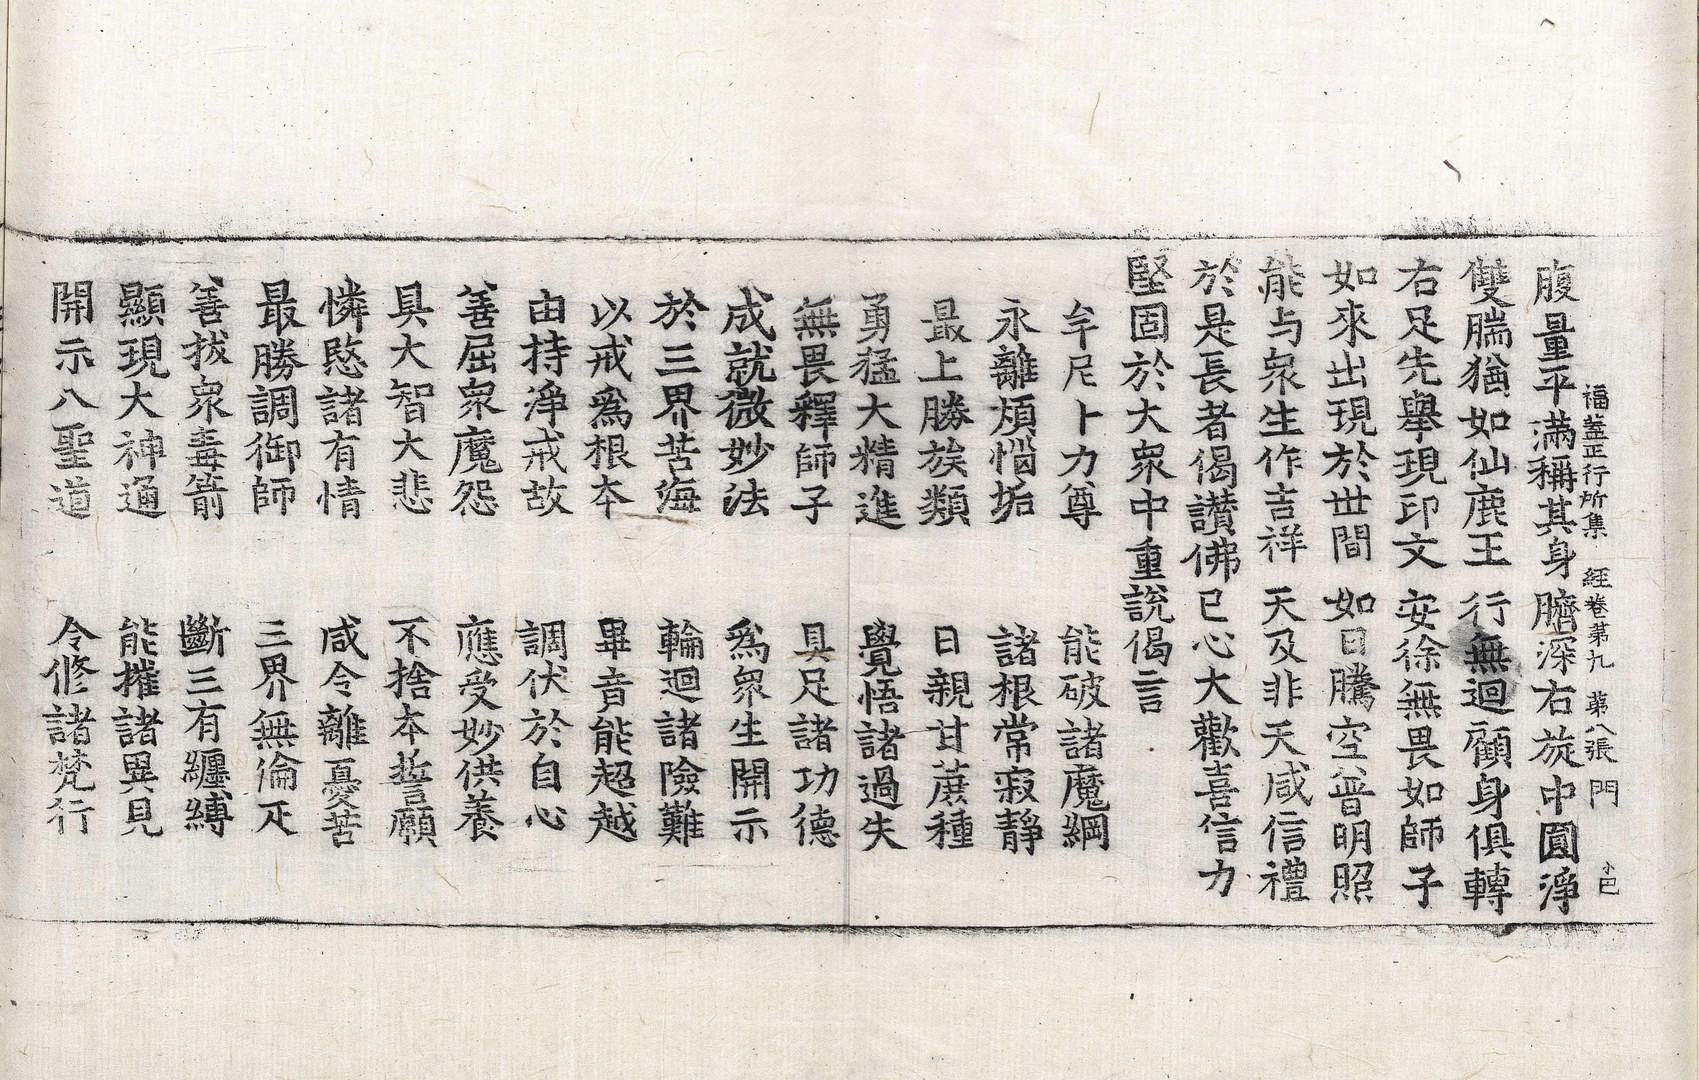 福蓋正行所集　經卷第九　第八張　門　小巳
腹量平滿稱其身臍深右旋中圓淨
雙腨猶如仙鹿王　行無迴顧身俱轉
右足先舉現印文　安徐無畏如師子
如來出現於世間　如日騰空普明照
能与衆生作吉祥　天及非天咸信禮
於是長者偈讃佛已心大歡喜信力
堅固於大衆中重說偈言
牟尼十力尊　能破諸魔網
永離煩惱垢　諸根常寂靜
最上勝族類　日親甘蔗種
勇猛大精進　覺悟諸過失
無畏釋師子　具足諸功德
成就微妙法　爲衆生開示
於三界苦海　輪迴諸險難
以戒爲根本　畢竟能超越
由持淨戒故　調伏於自心
善屈衆魔怨　應受妙供養
具大智大悲　不捨本誓願
憐愍諸有情　咸令離憂苦
最勝調御師　三界無倫疋
善拔衆毒箭　斷三有纏縛
顯現大神通　能摧諸異見
開示八聖道　令修諸梵行